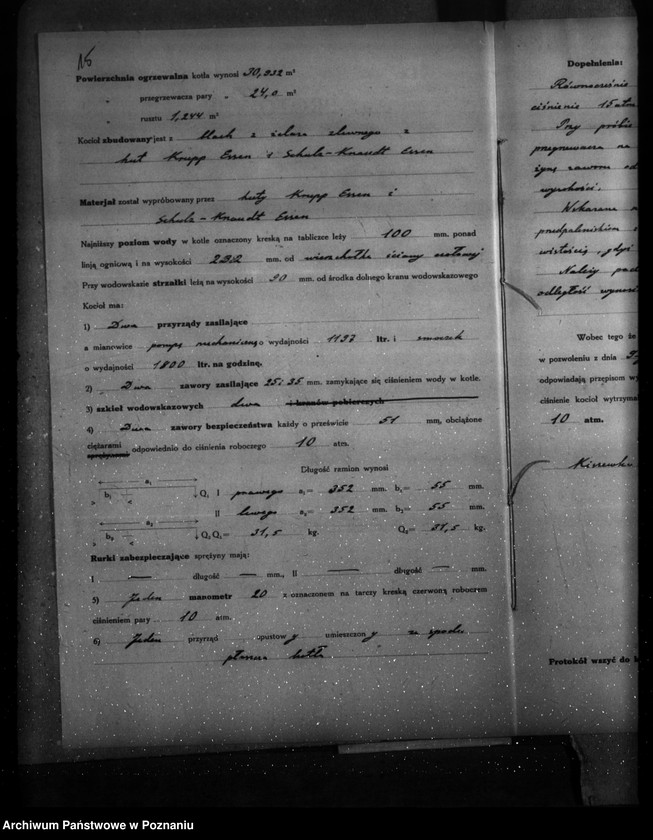 15
Powierzchnia ogrzewalna kotła wynosi 30,932 m²
„ przegrzewacza pary „ 24,0 m²
„ rusztu 1,244 m²
Kocioł zbudowany jest z blach z żelaza zlewnego z
hut Krupp Essen i Schulz-Knaudt Essen
Materjał został wypróbowany przez huty Krupp Essen i
Schulz-Knaudt Essen
Najniższy poziom wody w kotle oznaczony kreską na tabliczce leży 100 mm. ponad
linją ogniową i na wysokości 232 mm. od wierzchołka ściany
Przy wodowskazie strzałki leżą na wysokości 30 mm. od środka dolnego kranu wodowskazowego
Kocioł ma:
1) Dwa przyrządy zasilające
a mianowicie pompę mechaniczną o wydajności 1137 ltr. i smoczek
o wydajności 1800 ltr. na godzinę.
2) Dwa zawory zasilające 25 i 35 mm. zamykające się ciśnieniem wody w kotle.
3) szkieł wodowskazowych dwa i kranów pobierczych
4) Dwa zawory bezpieczeństwa każdy o prześwicie 51 mm, obciążone
ciężarami
sprężynami odpowiednio do ciśnienia roboczego 10 atm.
Długość ramion wynosi
a₁ b₁ Q₁ I prawego a₁= 352 mm. b₁= 55 mm.
II lewego a₂= 352 mm. b₂= 55 mm.
a₂ b₂ Q₂ Q₁= 31,5 kg. Q₂= 31,5 kg.
Rurki zabezpieczające sprężyny mają:
I — długość — mm., II — długość — mm.
5) Jeden manometr 20 z oznaczonem na tarczy kreską czerwoną roboczem
ciśnieniem pary 10 atm.
6) Jeden przyrząd upustowy umieszczony na spodu
płaszcza kotła
Dopełnienia:
Równocześnie
ciśnienie 15 atm
Przy próbie
przegrzewacza na
zawora
wysokości.
Wskazane
Należy
odległość
Wobec tego że
w pozwoleniu z dnia
odpowiadają przepisom wy
ciśnienie kocioł wytrzyma
10 atm.
Protokół wszyć do k
Archiwum Państwowe w Poznaniu